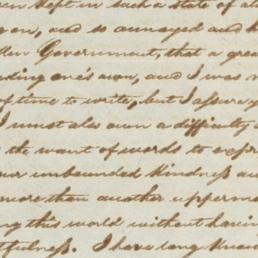 been kept in such a state of
on, and so annoyed and
Government, that a grea
ding one's own, and I was
of time to write, but I assure y
I must also own a difficulty
the want of words to expr
our unbounded kindness a
more than another upperm
ng this world without havin
tfulness. I have long